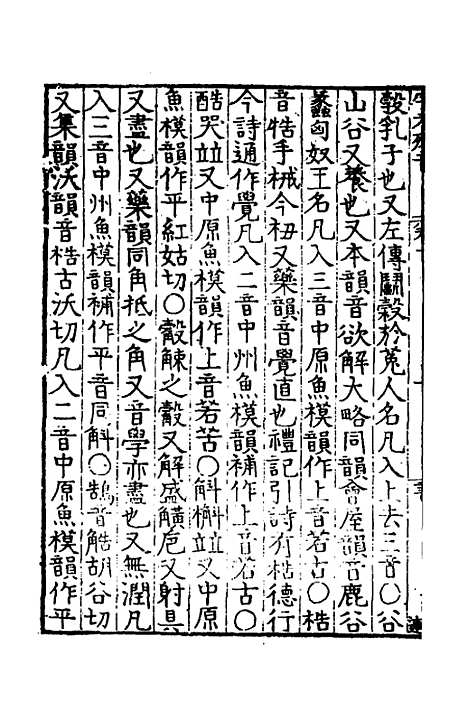 㝅乳子也又左傳鬬㝅於菟人名凡入上去三音〇谷
山谷又養也又本韻音欲解大略同韻會屋韻音鹿谷
蠡匈奴王名凡入三音中原魚模韻作上音若古〇梏
音牿手械今杻又藥韻音覺直也禮記引詩有梏德行
今詩通作覺凡入二音中州魚模韻補作上音若古〇
酷哭竝又中原魚模韻作上音若苦〇斛槲竝又中原
魚模韻作平紅姑切〇觳觳觫之觳又解盛觵卮又射具
又盡也又藥韻同角抵之角又音學亦盡也又無潤凡
入三音中州魚模韻補作平音同斛〇鵠音觟胡谷切
又集韻沃韻音梏古沃切凡入二音中原魚模韻作平